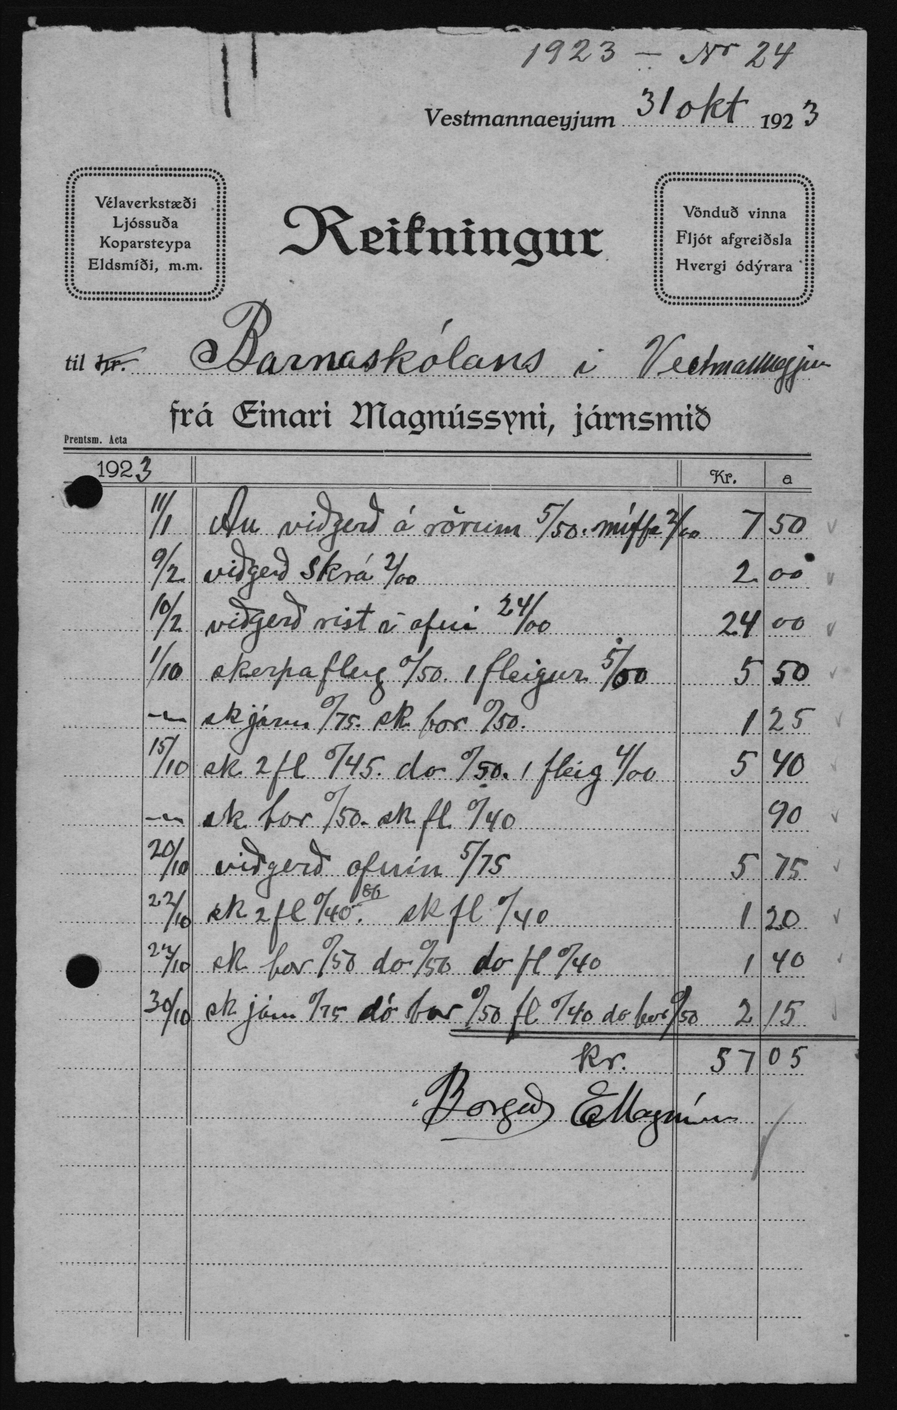 1923 – Nr 24
Vestmannaeyjum 31 okt 1923
Vélaverkstæði
Ljóssuða
Koparsteypa
Eldsmíði, m.m.
Reikningur
Vönduð vinna
Fljót afgreiðsla
Hvergi ódýrara
til hr. Barnaskólans í Vestmannaeyjum
frá Einari Magnússyni, járnsmið
Prentsm. Acta
1923 Kr. a
11/1 viðgerð á rörum 5/50. 2/00 7 50
9/2 viðgerð skrá 2/00 2 00
10/2 viðgerð rist í ofni 24/00 24 00
1/10 skerpa fleig 0/50. 1 fleigur 5/00 5 50
-"- sk járn 0/75. sk bor 0/50. 1 25
15/10 sk 2 fl 0/45. do 0/50. 1 fleig 4/00 5 40
-"- sk bor 0/50. sk fl 0/40 90
20/10 viðgerð ofnin 5/75 5 75
22/10 sk 2 fl 0/40. sk fl 0/40 1 20
sk bor 0/50 do 0/50 do fl 0/40 1 40
30/10 sk járn 0/75 do bor 0/50 fl 0/40 do bor 0/50 2 15
kr. 57 05
Borgað EMagnússon